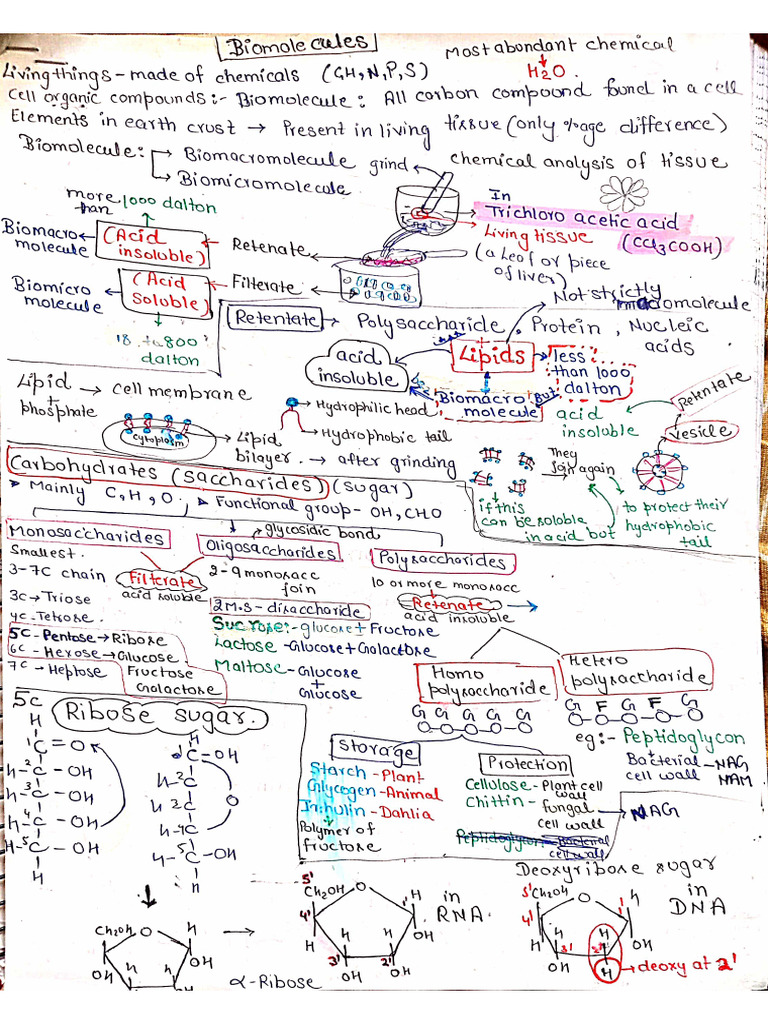 Biomolecules
Most abondant chemical
Living things - made of chemicals (CH, N, P, S)
H2O.
Cell organic compounds:- Biomolecule: All carbon compound found in a cell
Elements in earth crust → Present in living tissue (only %age difference)
Biomolecule: → Biomacromolecule
grind
chemical analysis of tissue
→ Biomicromolecule
more than 1000 dalton
In
Trichloro acetic acid
Living tissue (CCl3COOH)
(a leaf or piece of liver)
Biomacro molecule
(Acid insoluble)
Retenate
Biomicro molecule
(Acid Soluble)
Filterate
18 to 800 dalton
Not strictly macromolecule
Retentate → Polysaccharide, Protein, Nucleic acids
acid insoluble
Lipids
less than 1000 dalton
Biomacro molecule
But
acid insoluble
Retentate
vesicle
Lipid + phosphate → cell membrane
Hydrophilic head
Hydrophobic tail
cytoplasm
Lipid bilayer. → after grinding
They join again
if this can be soluble in acid but
to protect their hydrophobic tail
Carbohydrates (saccharides) (sugar)
Mainly C, H, O.
Functional group - OH, CHO
glycosidic bond
Monosaccharides
Oligosaccharides
Polysaccharides
Smallest.
3-7C chain
Filterate
acid soluble
2-9 monosacc join
10 or more monosacc
Retenate
acid insoluble
3C → Triose
4C - Tetrose
5C - Pentose → Ribose
6C - Hexose → Glucose.
Fructose
Galactose
7C → Heptose
2 M.S - disaccharide
Sucrose:- glucose + Fructose
Lactose - Glucose + Galactose
Maltose - Glucose + Glucose
Homo polysaccharide
G G G G G
O-O-O-O-O
Hetero polysaccharide
G F G F G
O-O-O-O-O
eg:- Peptidoglycon
Bacterial cell wall
NAG
NAM
Storage
Starch - Plant
Glycogen - Animal
Inhulin - Dahlia
Polymer of fructose
Protection
Cellulose - Plant cell wall
Chittin - fungal cell wall
NAG
Peptidoglycon - Bacterial cell wall
5C
Ribose sugar.
H
1C=O
H-2C-OH
H-3C-OH
H-4C-OH
H-5C-OH
H
H
C-OH
H-2C
H-3C
O
H-4C
H-5C-OH
H
CH2OH
O
H
OH
H
H
OH
OH
α-Ribose
5'
CH2OH
O
4'
1'
H
H
3'
2'
OH
OH
OH
in RNA.
Deoxyribose sugar
5'
CH2OH
O
4'
1'
H
H
3'
2'
H
OH
OH
H
deoxy at 2'
in DNA